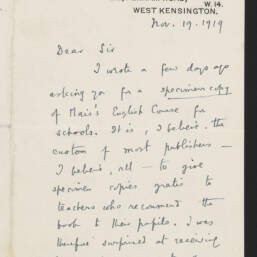 W.14.
WEST KENSINGTON.
Nov. 19. 1919
Dear Sir
I wrote a few days ago
asking you for a specimen copy
of Mais's English Course for
schools. It is, I believe, the
custom of most publishers —
I believe, all — to give
specimen copies gratis to
teachers who recommend the
book to their pupils. I was
therefore surprised at receiving